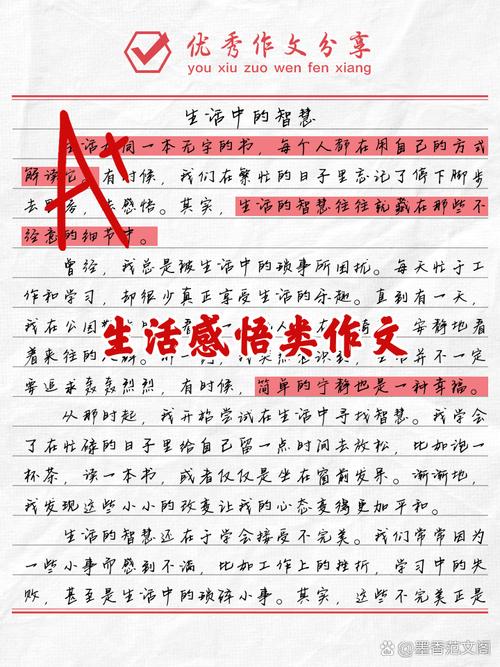 优秀作文分享
you xiu zuo wen fen xiang
生活中的智慧
A+
生活如同一本无字的书，每个人都在用自己的方式
解读它。有时候，我们在繁忙的日子里忘记了停下脚步
去思考，去感悟。其实，生活的智慧往往就藏在那些不
经意的细节中。
曾经，我总是被生活中的琐事所困扰。每天忙于工
作和学习，却很少真正享受生活的乐趣。直到有一天，
我在公园
生活感悟类作文
安静地看
着来往的
并不一定
要追求轰轰烈烈，有时候，简单的宁静也是一种幸福。
从那时起，我开始尝试在生活中寻找智慧。我学会
了在忙碌的日子里给自己留一点时间去放松，比如泡一
杯茶，读一本书，或者仅仅是坐在窗前发呆。渐渐地，
我发现这些小小的改变让我的心态变得更加平和。
生活的智慧还在于学会接受不完美。我们常常因为
一些小事而感到不满，比如工作上的挫折，学习中的失
败，甚至是生活中的琐碎小事。其实，这些不完美正是
墨香范文阁